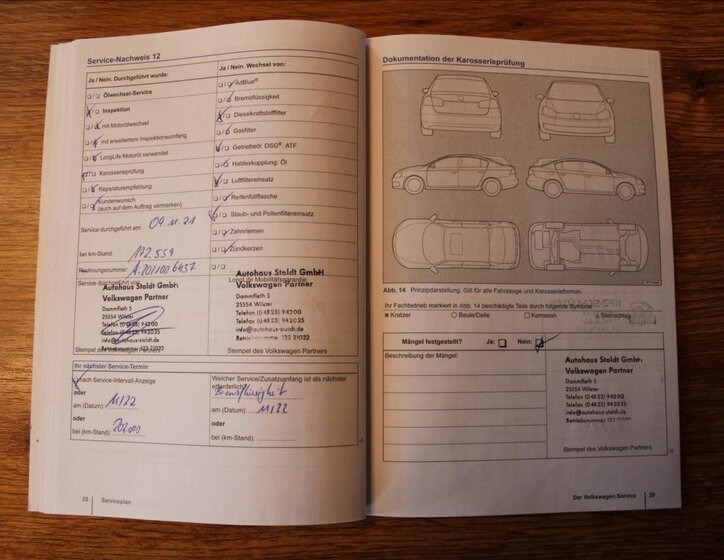 Service-Nachweis 12
Ja / Nein. Durchgeführt wurde:
❑ / ❑ Ölwechsel-Service
❑ / ❑ Inspektion
❑ / ❑ mit Motorölwechsel
❑ / ❑ mit erweitertem Inspektionsumfang
❑ / ❑ LongLife Motoröl verwendet
❑ / ❑ Karosserieprüfung
❑ / ❑ Reparaturempfehlung
❑ / ❑ Kundenwunsch
(auch auf dem Auftrag vermerken)
Service durchgeführt am: 09.11.21
bei km-Stand: 172.559
Rechnungsnummer:
Service durchgeführt von:
Autohaus Stoldt GmbH
Volkswagen Partner
Dammfleth 5
25554 Wilster
Telefon (0 48 23) 9 42 00
Telefax (0 48 23) 94 20 25
info@autohaus-stoldt.de
Stempel des Volkswagen Partners
Ja / Nein. Wechsel von:
❑ / ❑ AdBlue®
❑ / ❑ Bremsflüssigkeit
❑ / ❑ Dieselkraftstofffilter
❑ / ❑ Gasfilter
❑ / ❑ Getriebeöl: DSG®, ATF
❑ / ❑ Haldexkupplung: Öl
❑ / ❑ Luftfiltereinsatz
❑ / ❑ Reifenfüllflasche
❑ / ❑ Staub- und Pollenfiltereinsatz
❑ / ❑ Zahnriemen
❑ / ❑ Zündkerzen
❑ / ❑
LongLife Mobilitätsgarantie
Autohaus Stoldt GmbH
Volkswagen Partner
Dammfleth 5
25554 Wilster
Telefon (0 48 23) 9 42 00
Telefax (0 48 23) 94 20 25
info@autohaus-stoldt.de
Stempel des Volkswagen Partners
Ihr nächster Service-Termin
❑ nach Service-Interval-Anzeige
oder
am (Datum): 11/22
oder
bei (km-Stand): 202.000
Welcher Service/Zusatzumfang ist als nächster
erforderlich?
Bremsflüssigkeit
am (Datum): 11/22
oder
bei (km-Stand):
28 Serviceplan
Dokumentation der Karosserieprüfung
Abb. 14 Prinzipdarstellung. Gilt für alle Fahrzeuge und Karosserieformen.
Ihr Fachbetrieb markiert in Abb. 14 beschädigte Teile durch folgende Symbole:
× Kratzer ○ Beule/Delle □ Korrosion △ Steinschlag
Mängel festgestellt? Ja: ❑ Nein: ❑
Beschreibung der Mängel:
Autohaus Stoldt GmbH
Volkswagen Partner
Dammfleth 5
25554 Wilster
Telefon (0 48 23) 9 42 00
Telefax (0 48 23) 94 20 25
info@autohaus-stoldt.de
Stempel des Volkswagen Partners
Der Volkswagen Service 29